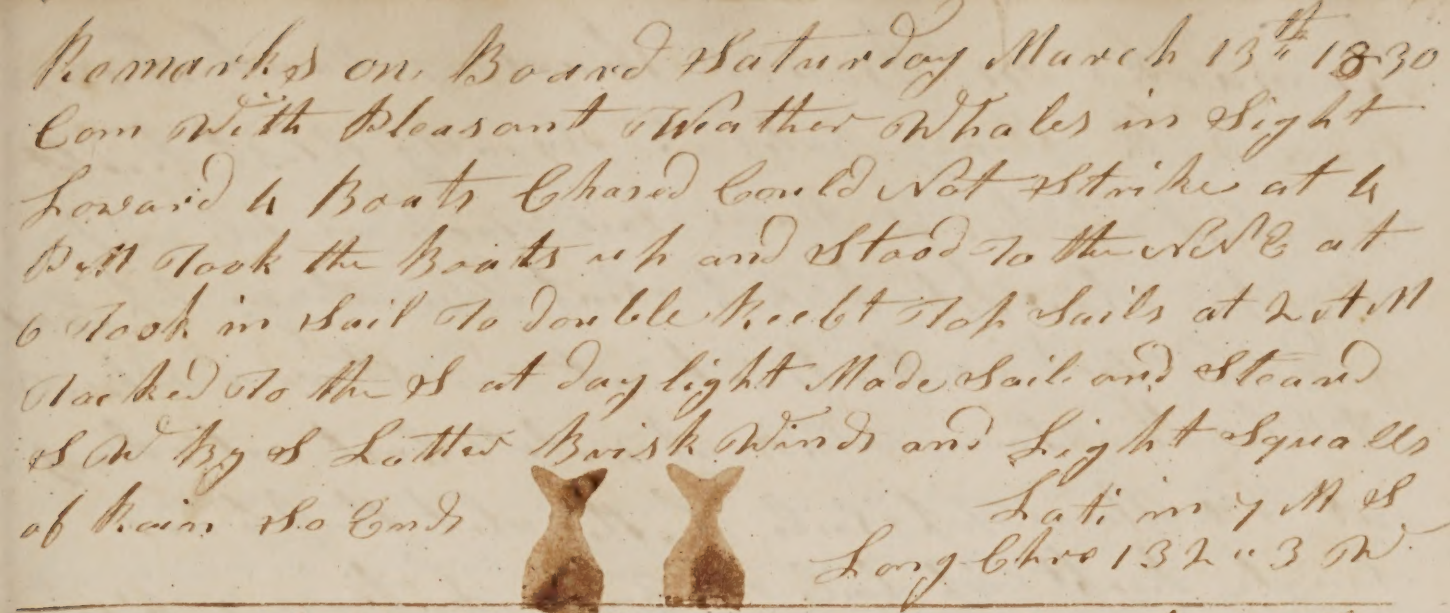 Remarks on Board Saturday March 13th 1830
Com With Pleasant Weather Whales in Sight
Loward 4 Boats Chased Could Not Strike at 4
P M Took the Boats up and Stood To the NNE at
6 Took in Sail To double Reeft Top Sails at 2 A M
Tacked To the S at day light Made Sail and Steard
S W By S Latter Brisk Winds and Light Squalls
of Rain So Ends
Lati in 7 M S
Long Chro 132 " 3 W